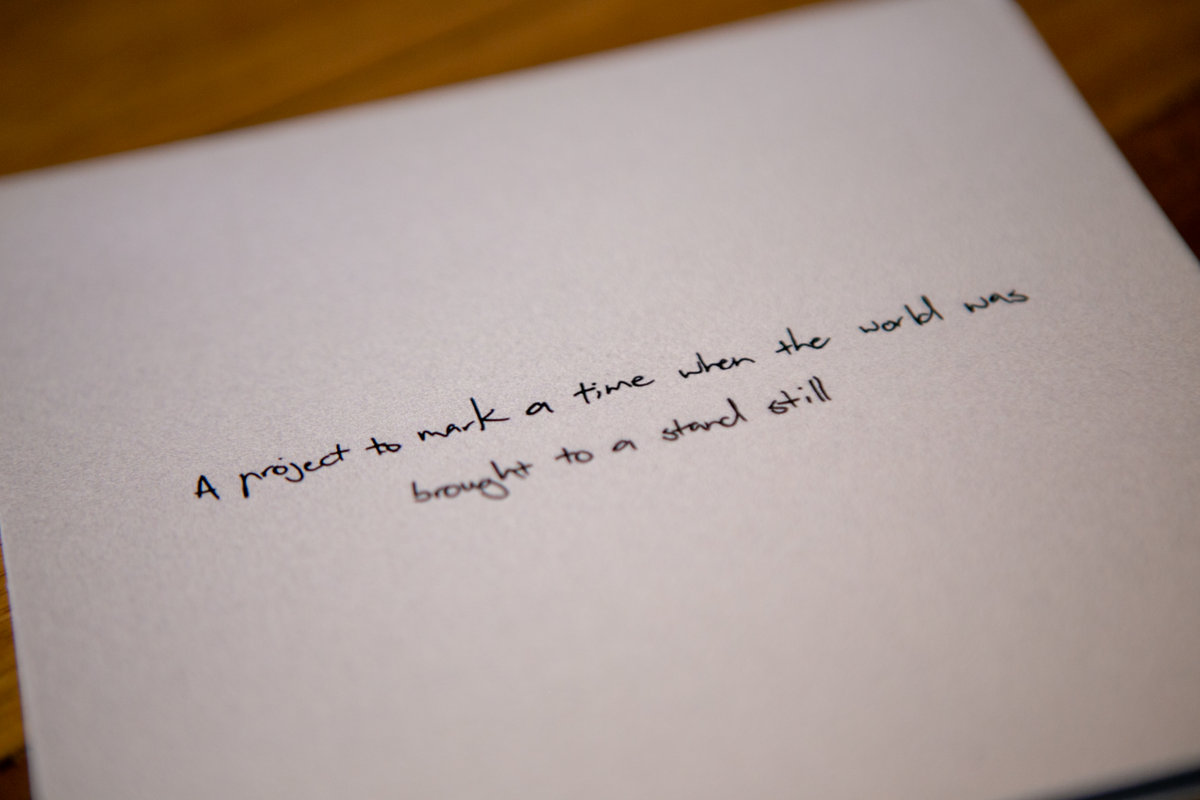 A project to mark a time when the world was
brought to a stand still